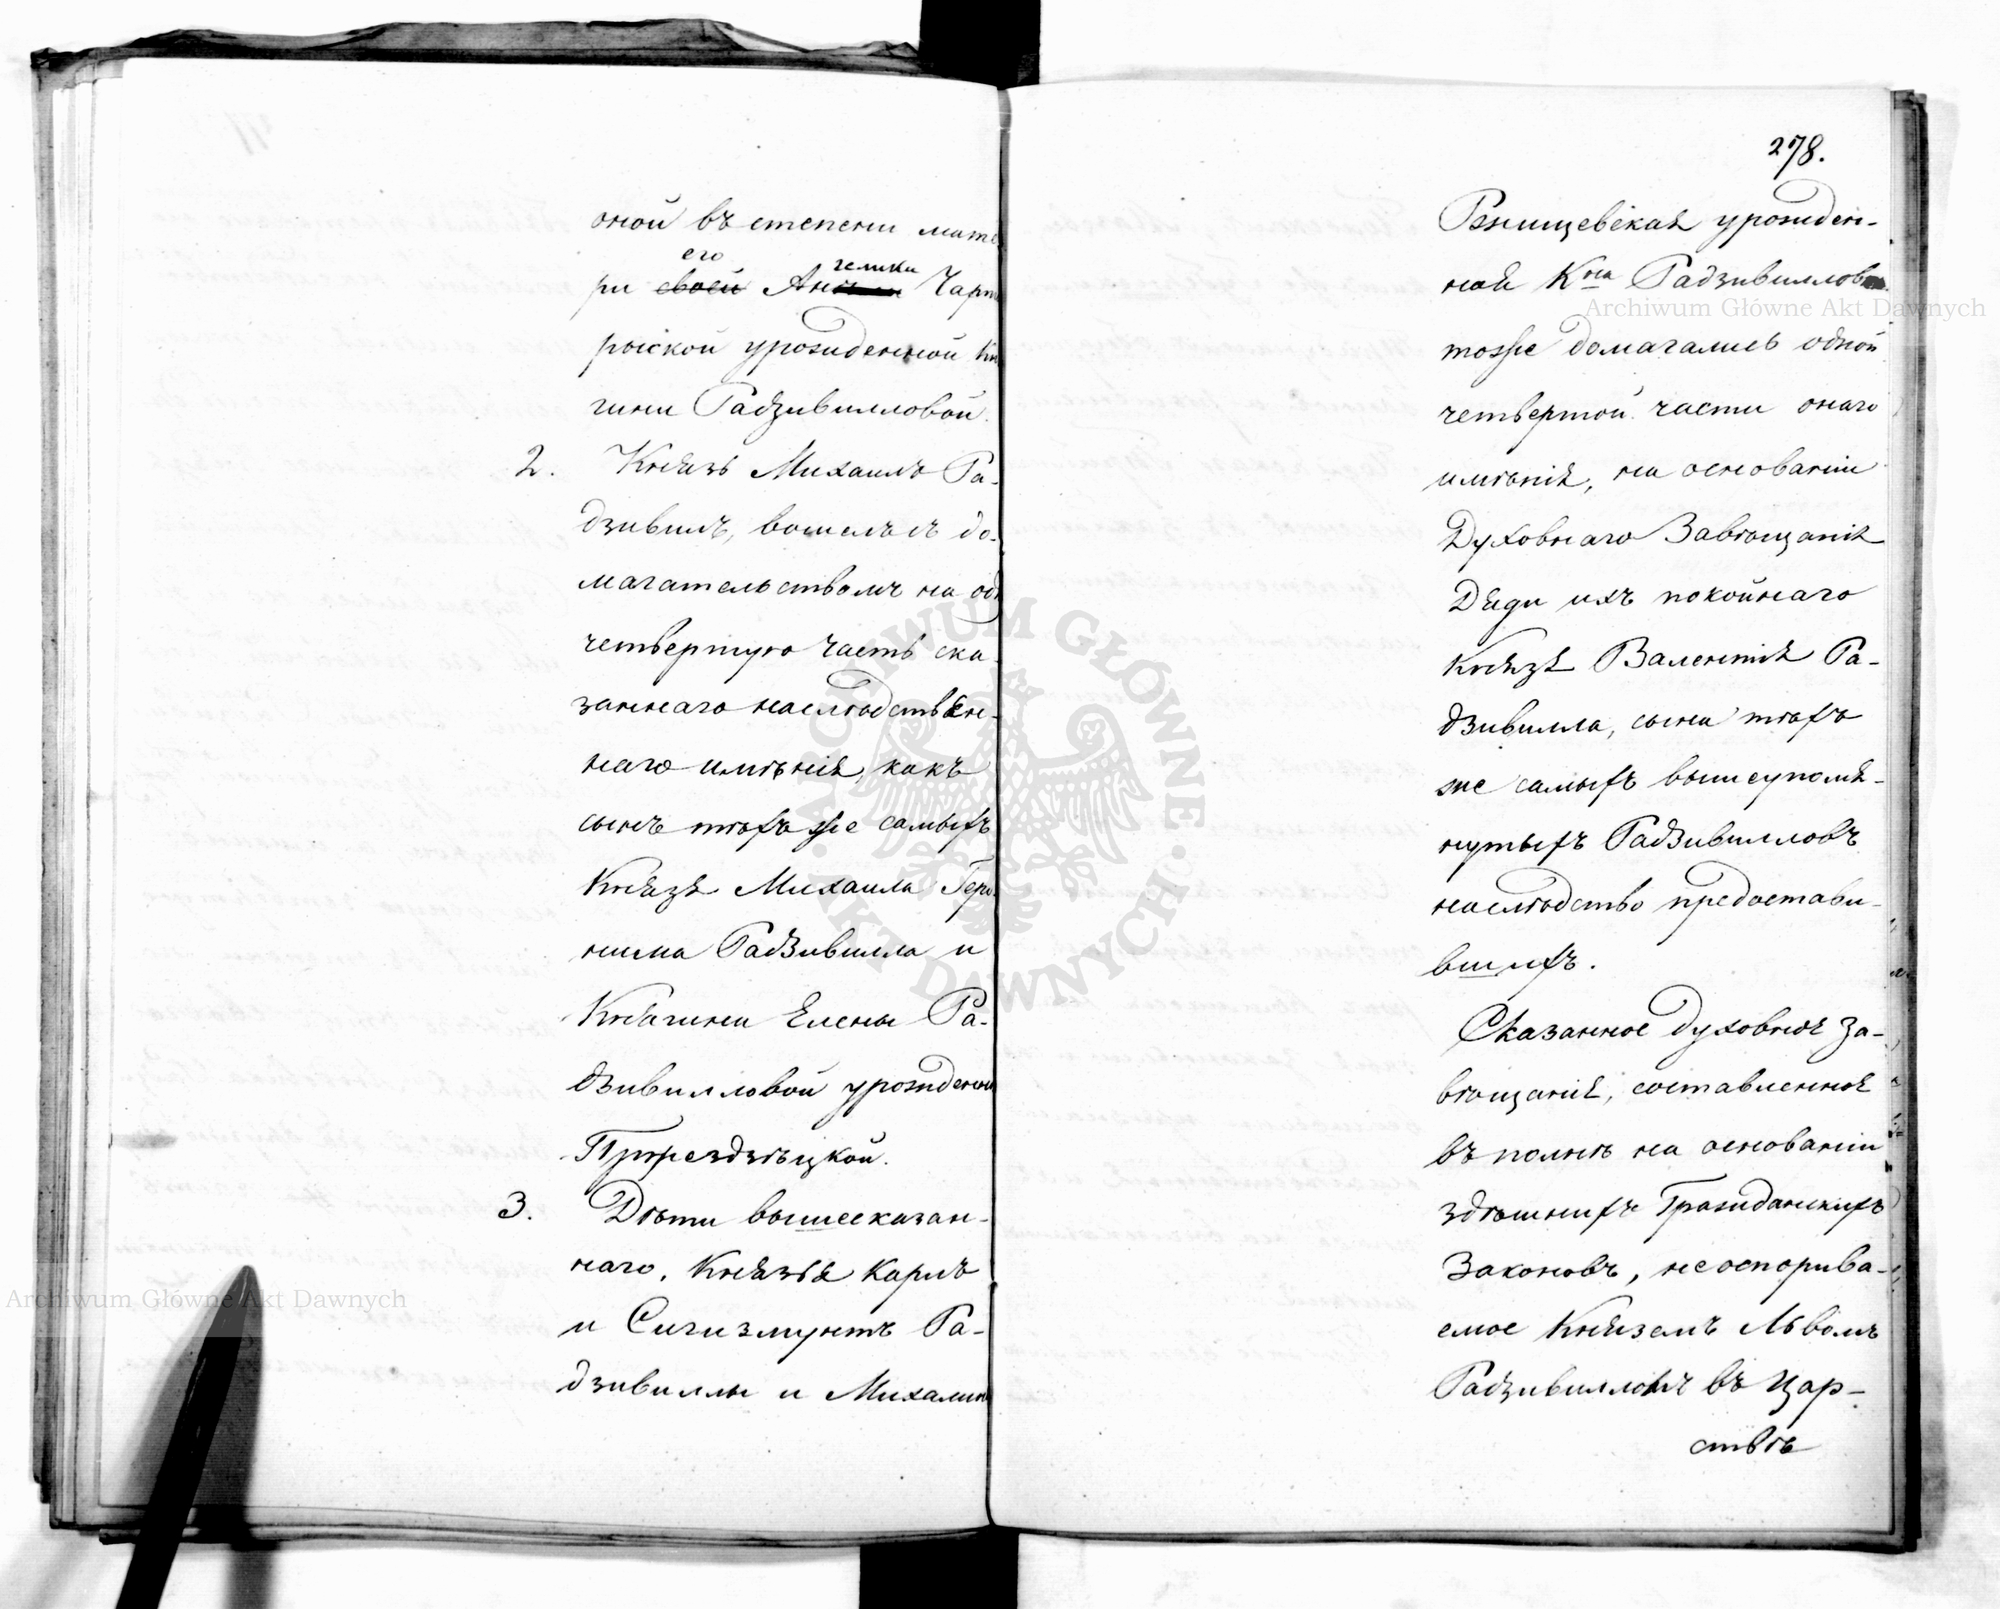 оной въ степени мате
ри его своей Ангелики Чарто
рыской урожденной Кня
гини Радзивилловой.
2. Князь Михаилъ Ра-
дзивилъ, вошелъ съ до-
магательствомъ на одн
четвертую часть ска-
заннаго наслѣдствен-
наго имѣнія, какъ
сынъ тѣхъ же самыхъ
Князя Михаила Геро
нима Радзивилла и
Княгини Елены Ра-
дзивилловой урожденной
Пржездзѣцкой.
3. Дѣти вышесказан-
наго, Князья Карлъ
и Сигизмунтъ Ра-
дзивиллы и Михалин
278.
Ржищевская урожден-
ная Кна Радзивиллов
тоже домагались одной
четвертой части онаго
имѣнія, на основаніи
Духовнаго Завѣщанія
Дяди ихъ покойнаго
Князя Валентія Ра-
дзивилла, сына тѣхъ
же самыхъ вышеупомя-
нутыхъ Радзивилловъ
наслѣдство предостави-
вшихъ.
Сказанное духовное за-
вѣщаніе, составленное
въ полнѣ на основаніи
здѣшнихъ Гражданскихъ
Законовъ, неоспорива-
емое Княземъ Львомъ
Радзивилломъ въ Цар-
ствѣ
Archiwum Główne Akt Dawnych
Archiwum Główne Akt Dawnych
ARCHIWUM GŁÓWNE AKT DAWNYCH